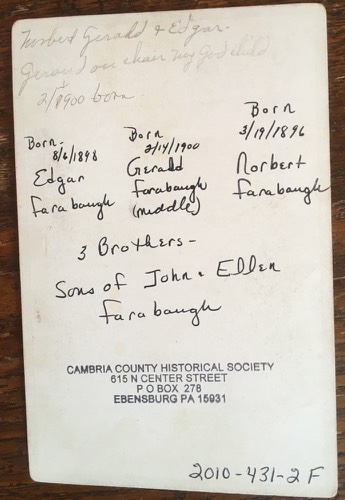 Norbert Gerald & Edgar.
Gerald on chair my God child
2/1900 born
Born
3/19/1896
Norbert
Farabaugh
Born
2/14/1900
Gerald
Farabaugh
(middle)
Born.
8/6/1898
Edgar
Farabaugh
3 Brothers-
Sons of John & Ellen
Farabaugh
CAMBRIA COUNTY HISTORICAL SOCIETY
615 N CENTER STREET
P O BOX 278
EBENSBURG PA 15931
2010-431-2 F